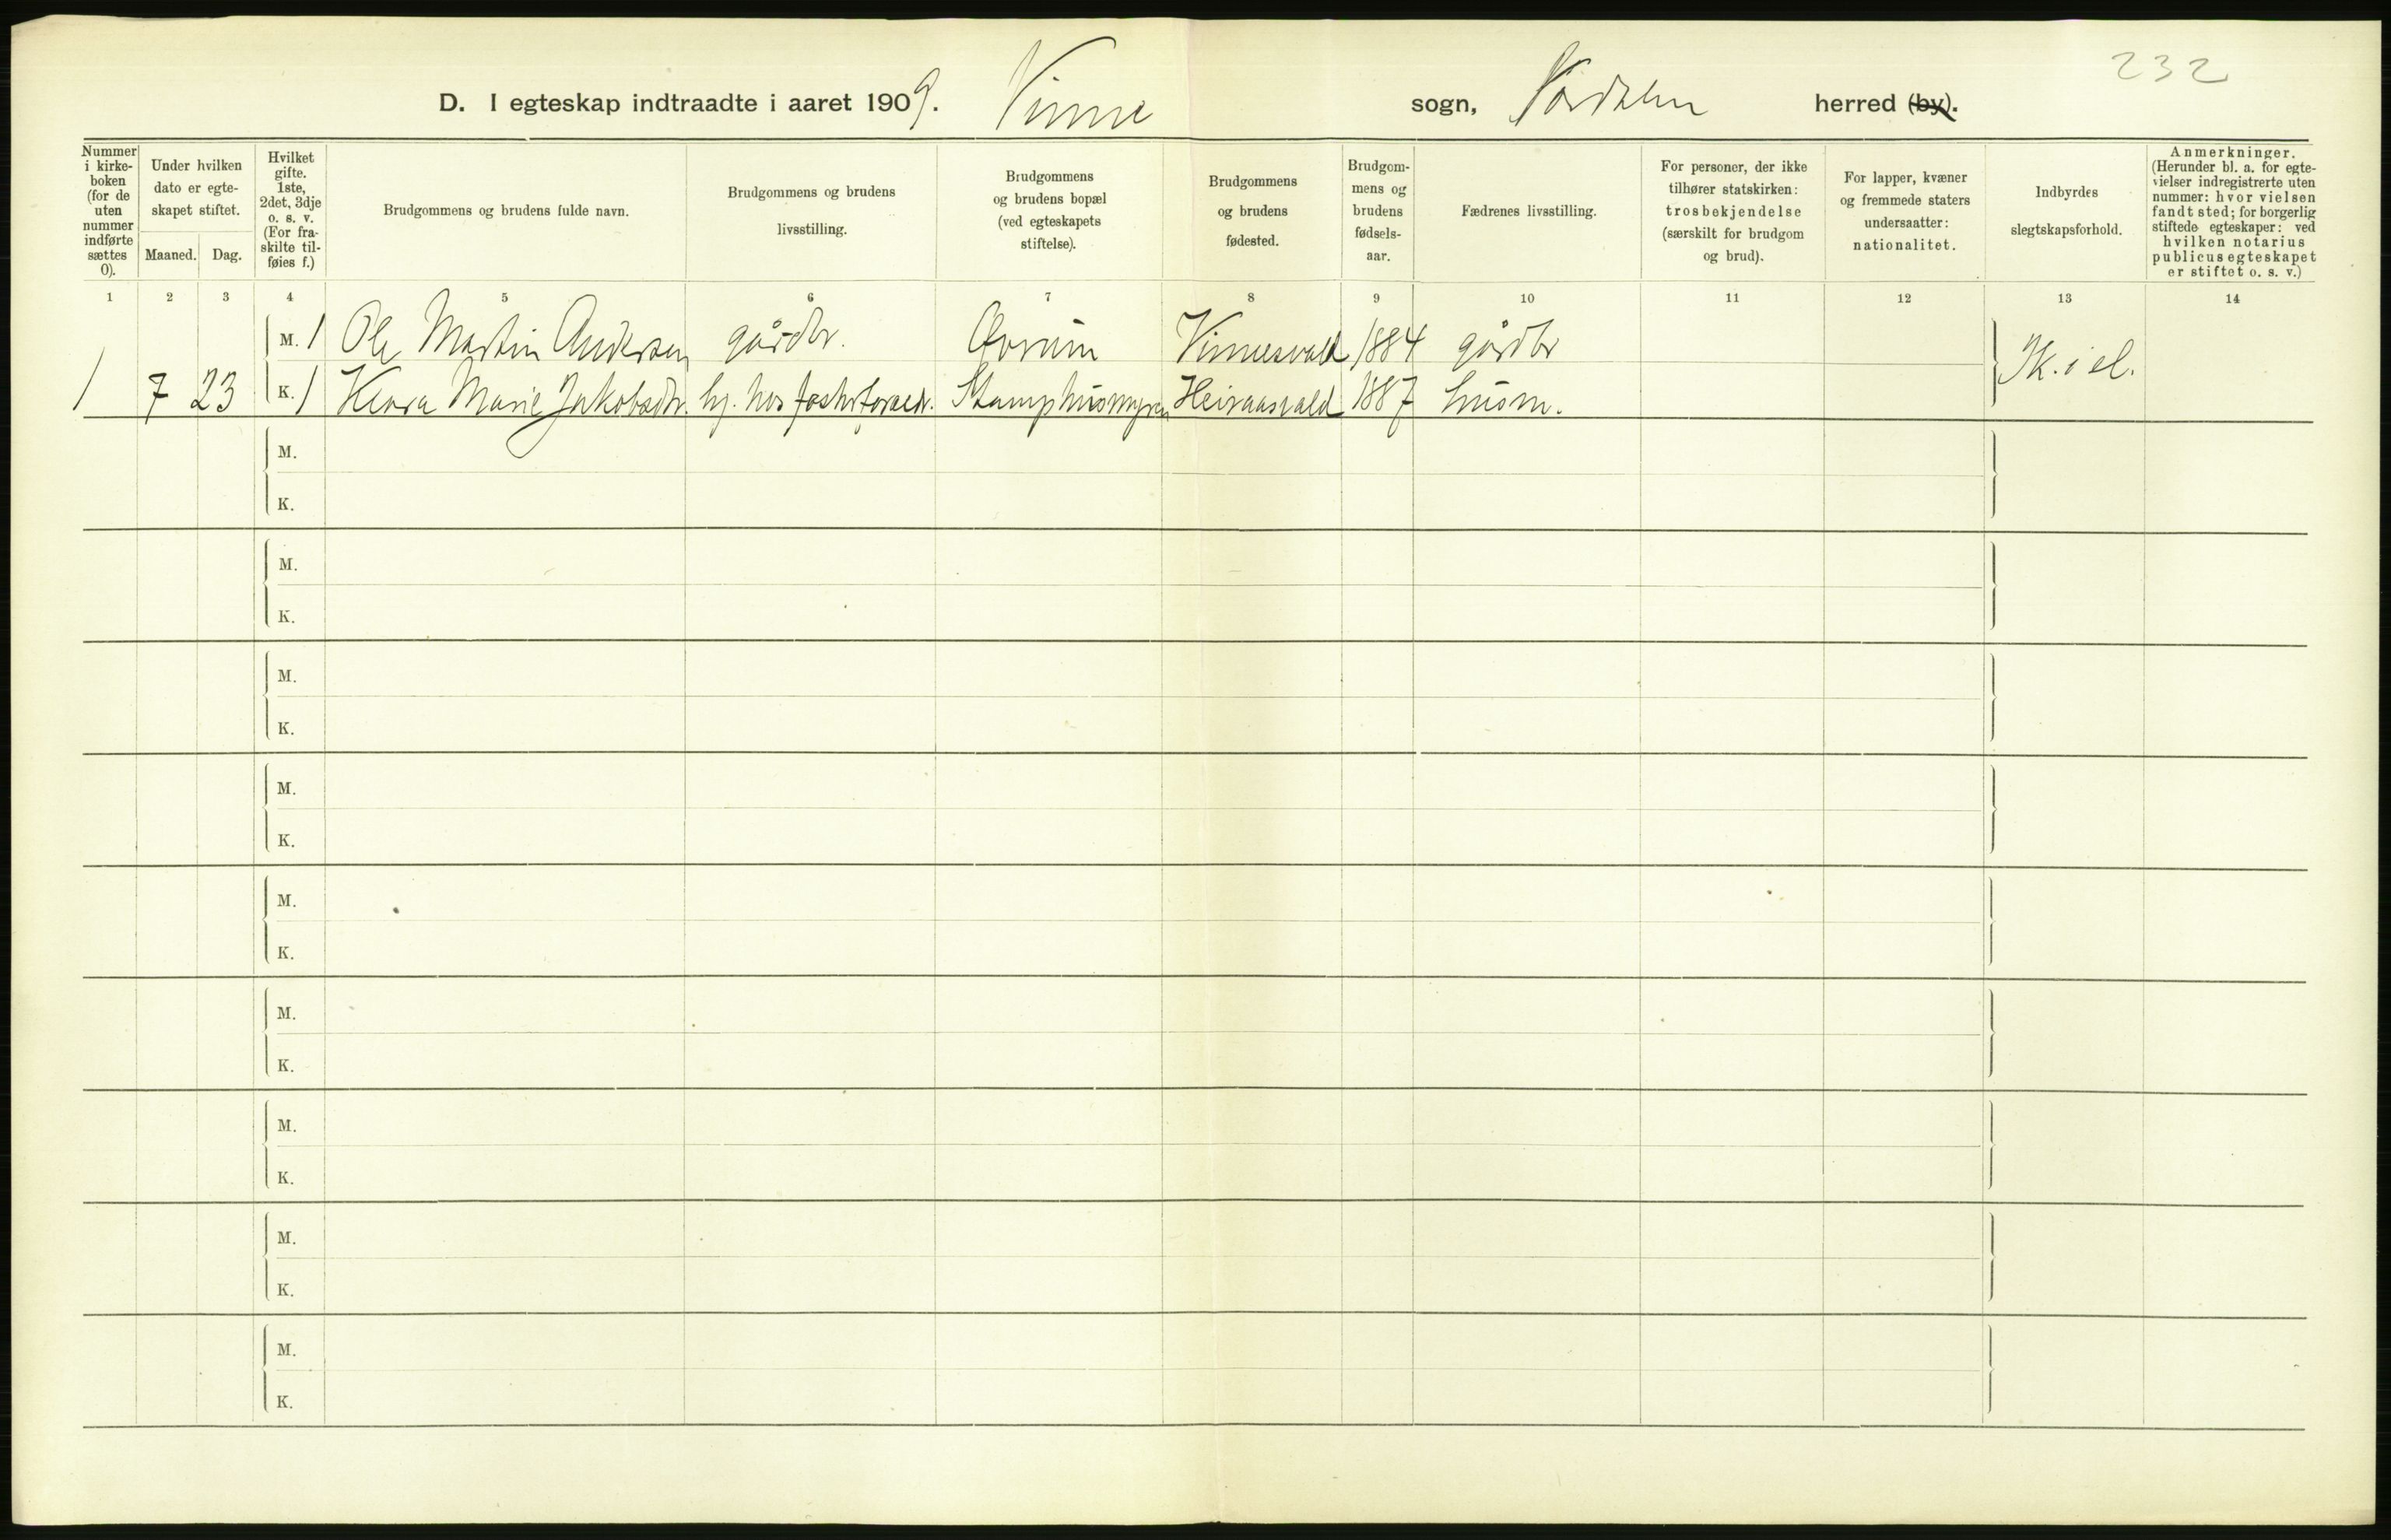 232
D. I egteskap indtraadte i aaret 1909. Vinne sogn, herred (by).
Nummer i kirke-boken (for de uten nummer indførte sættes 0).
Under hvilken dato er egte-skapet stiftet.
Maaned. Dag.
Hvilket gifte. 1ste, 2det, 3dje o. s. v. (For fra-skilte til-føies f.)
Brudgommens og brudens fulde navn.
Brudgommens og brudens livsstilling.
Brudgommens og brudens bopæl (ved egteskapets stiftelse).
Brudgommens og brudens fødested.
Brudgom-mens og brudens fødsels-aar.
Fædrenes livsstilling.
For personer, der ikke tilhører statskirken: trosbekjendelse (særskilt for brudgom og brud).
For lapper, kvæner og fremmede staters undersaatter: nationalitet.
Indbyrdes slegtskapsforhold.
Anmerkninger. (Herunder bl. a. for egte-vielser indregistrerte uten nummer: hvor vielsen fandt sted; for borgerlig stiftede egteskaper: ved hvilken notarius publicus egteskapet er stiftet o. s. v.)
1 2 3 4 5 6 7 8 9 10 11 12 13 14
M. 1 Ole Martin Andersen gårdbr. Ovrum Vinnesvald 1884 gårdbr
1 7 23 K. 1 Marie Jakobsdtr. hj. hos fosterforæld. Stamphusmyren 1887 husm.
M.
K.
M.
K.
M.
K.
M.
K.
M.
K.
M.
K.
M.
K.
M.
K.
M.
K.